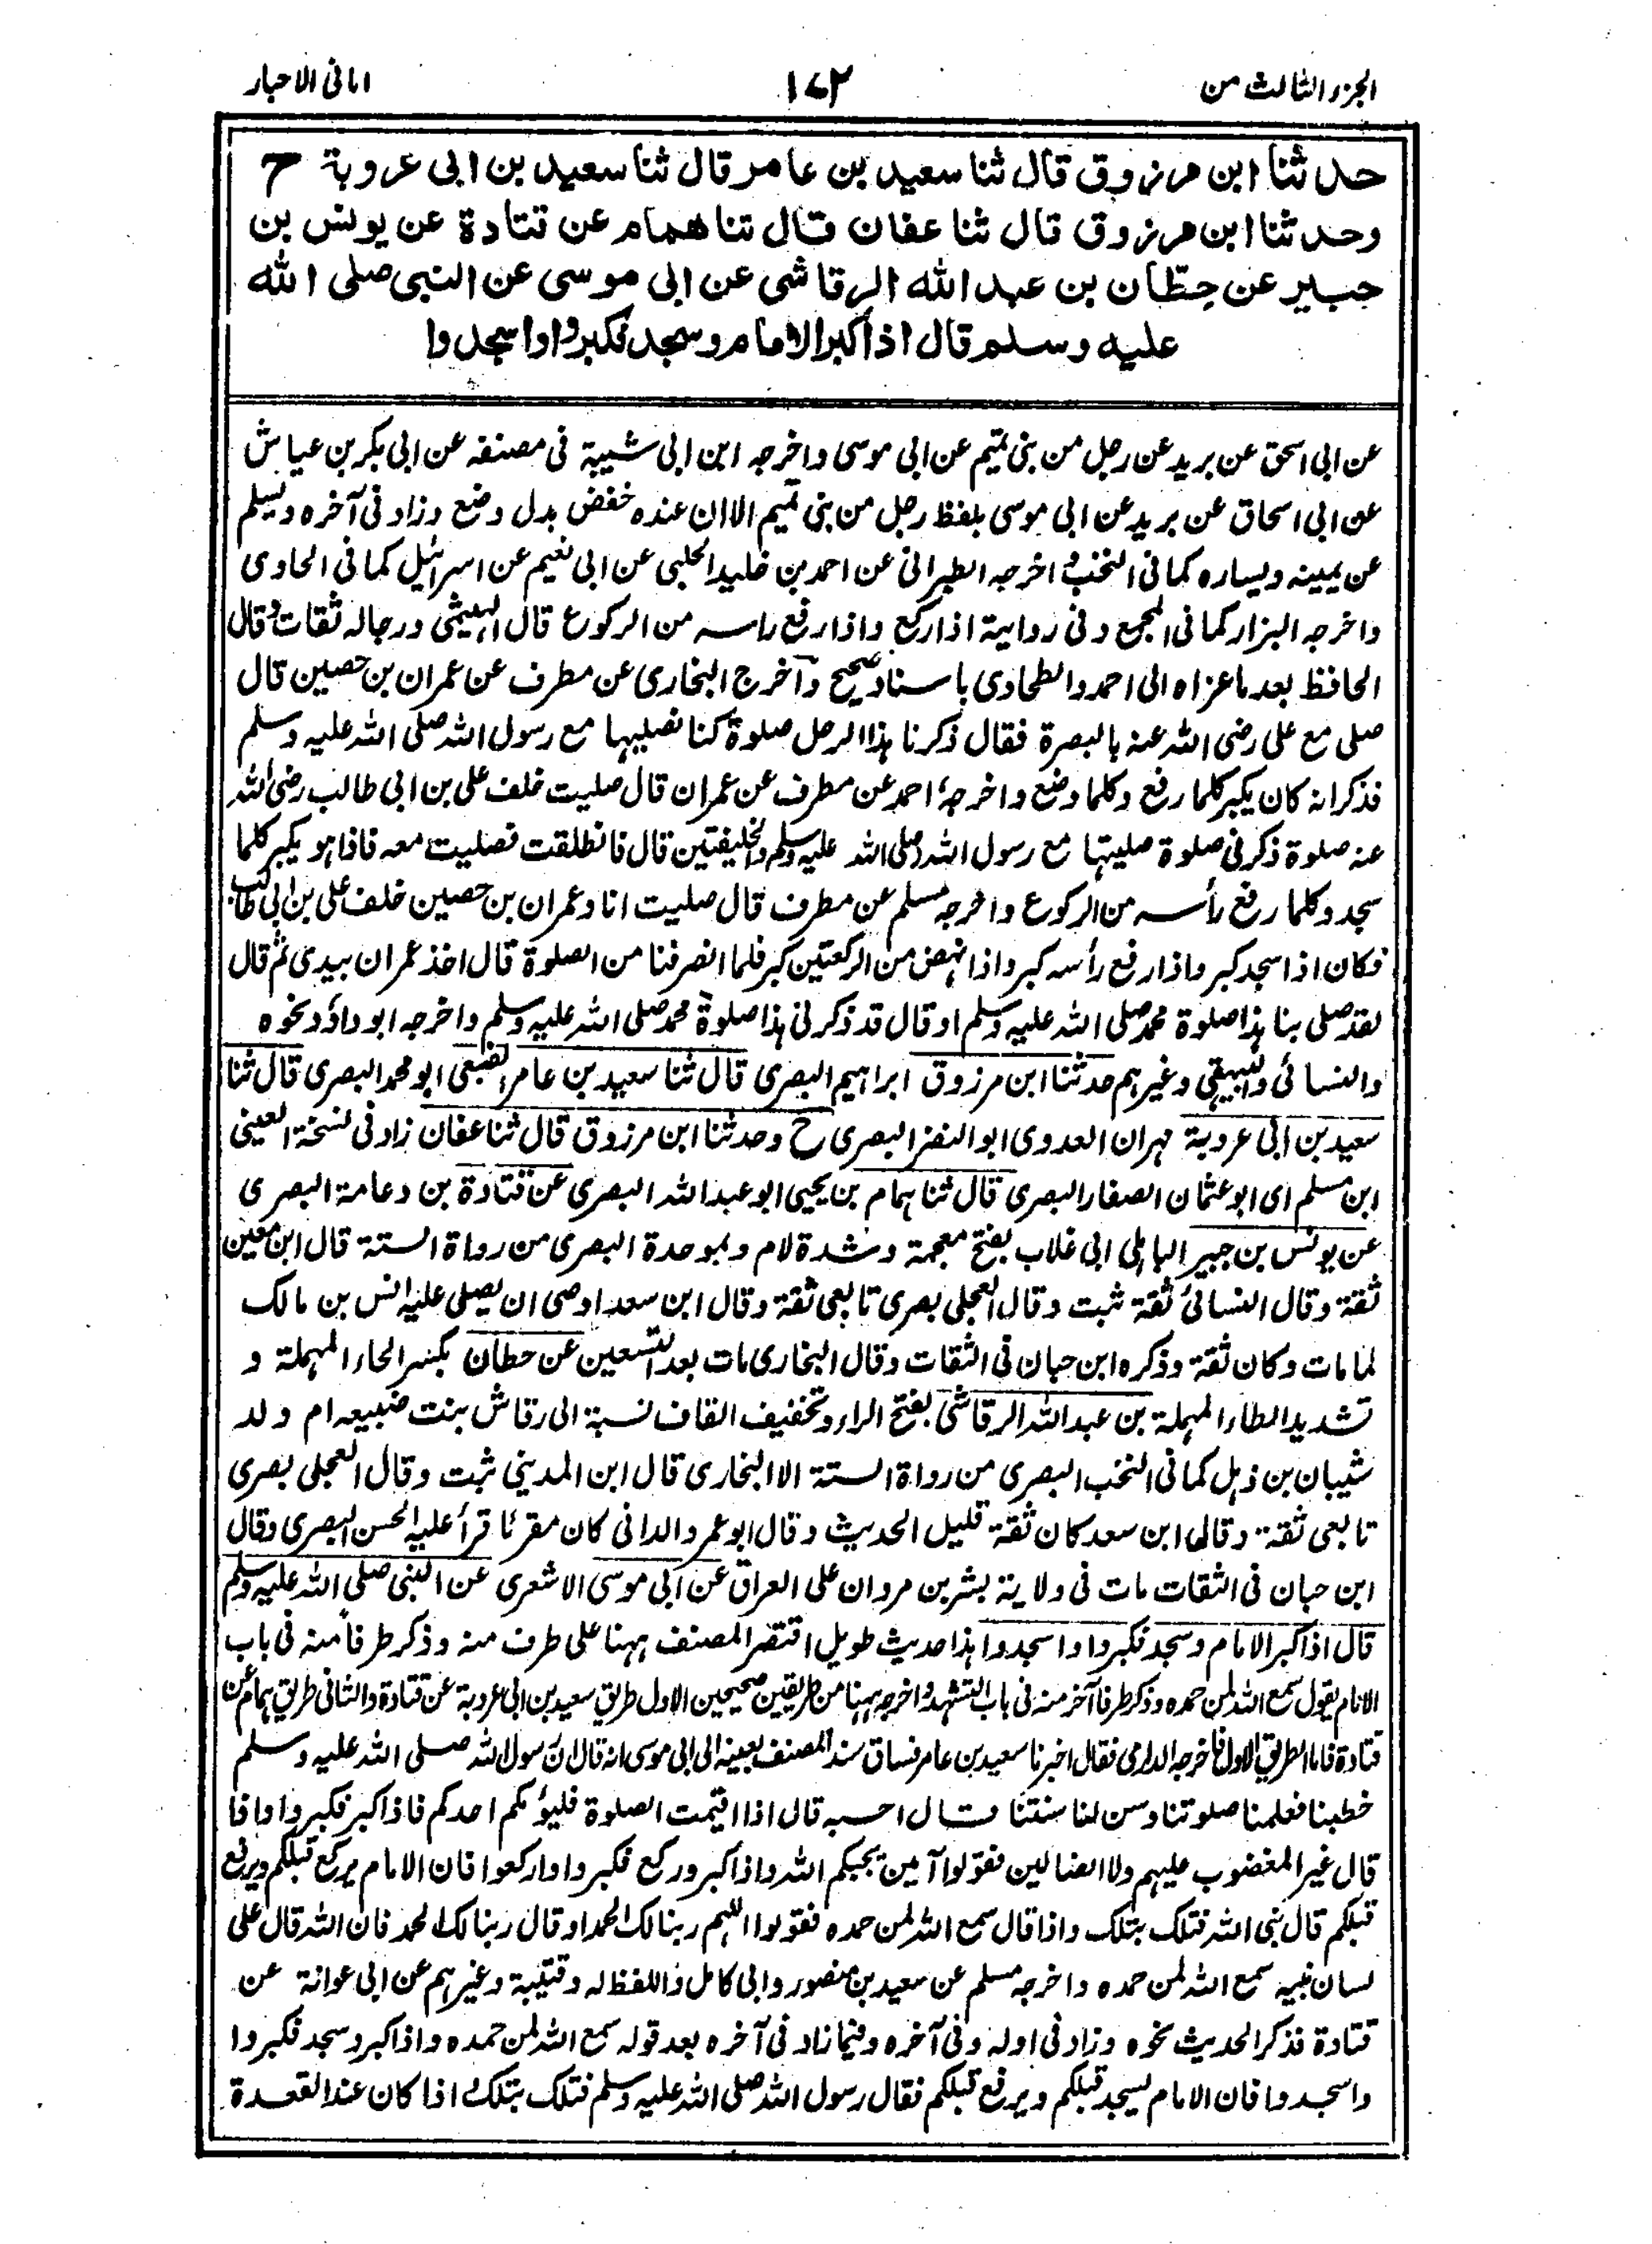 الجزء الثالث من
١٧٢
امانى الاحبار
حدثنا ابن مرزوق قال ثنا سعيد بن عامر قال ثنا سعيد بن ابى عروبة ح
وحدثنا ابن مرزوق قال ثنا عفان قال ثنا همام عن قتادة عن يونس بن
جبير عن حِطّان بن عبد الله الرقاشى عن ابى موسى عن النبى صلى الله
عليه وسلم قال اذا كبر الامام وسجد فكبروا واسجدوا
عن ابى اسحق عن بريد عن رجل من بنى تميم عن ابى موسى واخرجه ابن ابى شيبة فى مصنفه عن ابى بكر بن عياش
عن ابى اسحاق عن بريد عن ابى موسى بلفظ رجل من بنى تميم الا ان عنده خفض بدل وضع وزاد فى آخره ويسلم
عن يمينه ويساره كما فى النخب واخرجه الطبرانى عن احمد بن خليد الحلبى عن ابى نعيم عن اسرائيل كما فى الحاوى
واخرجه البزار كما فى المجمع وفى رواية اذا ركع واذا رفع راسه من الركوع قال الهيثمى ورجاله ثقات وقال
الحافظ بعد ما عزاه الى احمد والطحاوى باسناد صحيح وآخرج البخارى عن مطرف عن عمران بن حصين قال
صلى مع على رضى الله عنه بالبصرة فقال ذكرنا هذا الرجل صلوة كنا نصليها مع رسول الله صلى الله عليه وسلم
فذكر انه كان يكبر كلما رفع وكلما وضع واخرجه احمد عن مطرف عن عمران قال صليت خلف على بن ابى طالب رضى الله
عنه صلوة ذكرنى صلوة صليتها مع رسول الله صلى الله عليه وسلم والخليفتين قال فانطلقت فصليت معه فاذا هو يكبر كلما
سجد وكلما رفع رأسه من الركوع واخرجه مسلم عن مطرف قال صليت انا وعمران بن حصين خلف على بن ابى طالب
فكان اذا سجد كبر واذا رفع رأسه كبر واذا نهض من الركعتين كبر فلما انصرفنا من الصلوة قال اخذ عمران بيدى ثم قال
لقد صلى بنا هذا صلوة محمد صلى الله عليه وسلم او قال قد ذكرنى هذا صلوة محمد صلى الله عليه وسلم واخرجه ابو داؤد نحوه
والنسائى والبيهقى وغيرهم حدثنا ابن مرزوق ابراهيم البصرى قال ثنا سعيد بن عامر الضبعى ابو محمد البصرى قال ثنا
سعيد بن ابى عروبة مهران العدوى ابو النضر البصرى ح وحدثنا ابن مرزوق قال ثنا عفان زاد فى نسخة العينى
ابن مسلم اى ابو عثمان الصفار البصرى قال ثنا همام بن يحيى ابو عبد الله البصرى عن قتادة بن دعامة البصرى
عن يونس بن جبير الباهلى ابى غلاب بفتح معجمة وشدة لام وبموحدة البصرى من رواة الستة قال ابن معين
ثقة وقال النسائى ثقة ثبت وقال العجلى بصرى تابعى ثقة وقال ابن سعد اوصى ان يصلى عليه انس بن مالك
لما مات وكان ثقة وذكره ابن حبان فى الثقات وقال البخارى مات بعد التسعين عن حطان بكسر الحاء المهملة و
تشديد الطاء المهملة بن عبد الله الرقاشى بفتح الراء وتخفيف القاف نسبة الى رقاش بنت ضبيعه ام ولد
شيبان بن ذهل كما فى النخب البصرى من رواة الستة الا البخارى قال ابن المدينى ثبت وقال العجلى بصرى
تابعى ثقة وقال ابن سعد كان ثقة قليل الحديث وقال ابو عمرو الدانى كان مقرئا قرأ عليه الحسن البصرى وقال
ابن حبان فى الثقات مات فى ولاية بشر بن مروان على العراق عن ابى موسى الاشعرى عن النبى صلى الله عليه وسلم
قال اذا كبر الامام وسجد فكبروا واسجدوا هذا حديث طويل اقتصر المصنف ههنا على طرف منه وذكر طرفا منه فى باب
الامام يقول سمع الله لمن حمده وذكر طرفا آخر منه فى باب التشهد واخرجه ههنا من طريقين صحيحين الاول طريق سعيد بن ابى عروبة عن قتادة والثانى طريق همام عن
قتادة فاما الطريق الاول فاخرجه الدارمى فقال اخبرنا سعيد بن عامر فساق سند المصنف بعينه الى ابى موسى انه قال ان رسول الله صلى الله عليه وسلم
خطبنا فعلمنا صلوتنا وسن لنا سنتنا قال احسبه قال اذا اقيمت الصلوة فليؤمكم احدكم فاذا كبر فكبروا واذا
قال غير المغضوب عليهم ولا الضالين فقولوا آمين يجبكم الله واذا كبر وركع فكبروا واركعوا فان الامام يركع قبلكم ويرفع
قبلكم قال نبى الله فتلك بتلك واذا قال سمع الله لمن حمده فقولوا اللهم ربنا لك الحمد او قال ربنا لك الحمد فان الله قال على
لسان نبيه سمع الله لمن حمده واخرجه مسلم عن سعيد بن منصور وابى كامل واللفظ له وقتيبة وغيرهم عن ابى عوانة عن
قتادة فذكر الحديث نحوه وزاد فى اوله وفى آخره وفيما زاد فى آخره بعد قوله سمع الله لمن حمده واذا كبر وسجد فكبروا
واسجدوا فان الامام يسجد قبلكم ويرفع قبلكم فقال رسول الله صلى الله عليه وسلم فتلك بتلك واذا كان عند القعدة